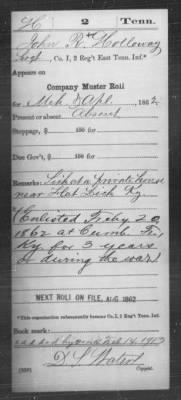 H 2 Tenn.
John R. Holloway
Sergt., Co. I, 2 Reg't East Tenn. Inf.*
Appears on
Company Muster Roll
for Mch & Apl, 1862.
Present or absent Absent
Stoppage, $ 100 for
Due Gov't, $ 100 for
Remarks: Sick at a private house
near Flat Lick Ky.
(Enlisted Feby 20
1862 at Cumb. Fd
Ky for 3 years
or during the war)
NEXT ROLL ON FILE, AUG 1862
*This organization subsequently became Co. I, 2 Reg't Tenn. Inf.
Book mark:
Feb 14 1913
(358)
Copyist.